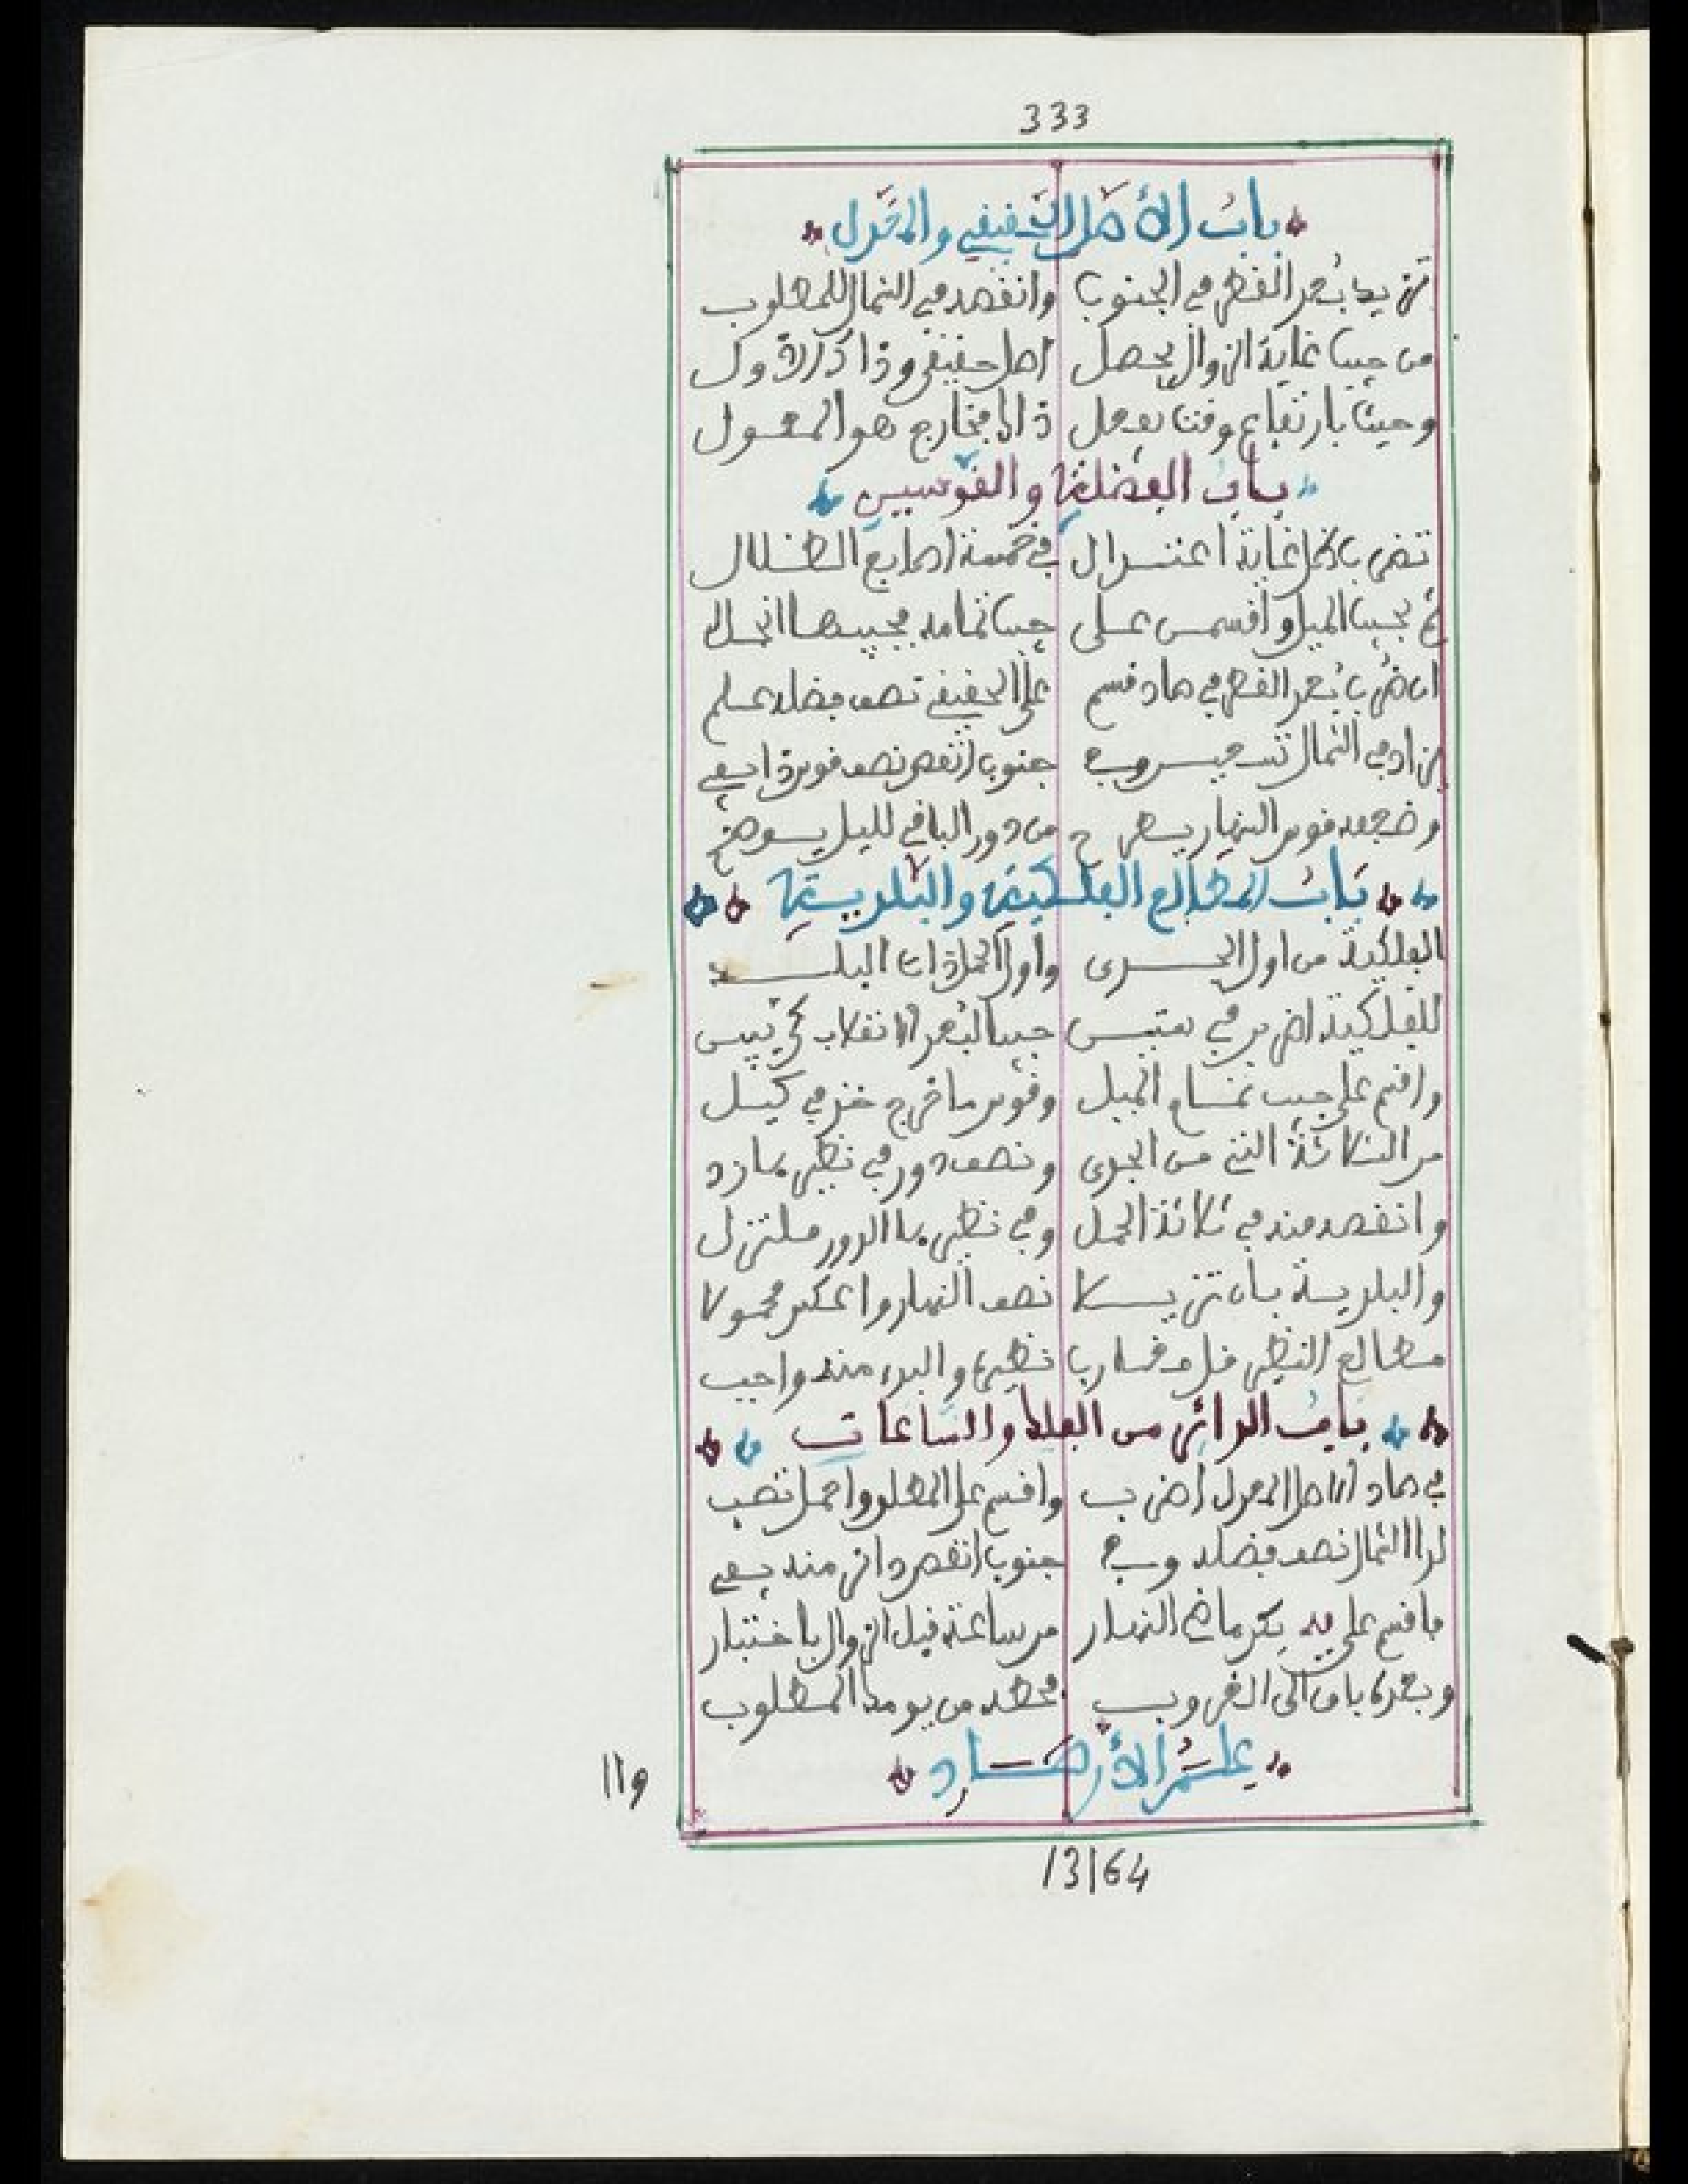 333
باب الأصل الحقيقي والمعدل
تزيد بعد القطر في الجنوب وانقصه في الشمال للمطلوب
من جيب غاية الزوال يحصل اصل حقيقي وذا ذاك الاول
وحيث بارتفاع وقت يعمل ذا الخارج هو المعدل
باب الفضلة والقوسين
تضرب باظل غاية اعتدال في خمسة اصابع الظلال
ثم بجيب الميل واقسمن على جيب تمامه بجيبها انجلا
اضرب بعد القطر في صاد قسم على الحقيقي نصف فضله علم
زاد في الشمال تسعين وفي جنوب انقص نصف قوس ذا يفي
وضعفه قوس النهار يطرح من دور الباقي لليل يوضح
باب المطالع الفلكية والبلدية
الفلكية من اول الجدي واول الحمل ذات البلد
للفلكية اضرب في ستين جيبا لبعد الانقلاب كي يبين
واقسم على جيب تمام الميل وقوس ما خرج خذ في كيل
من الثلاثة التي من الجدي ونصف دور في نظيرها زد
وانقصه منه في ثلاثة الحمل وفي نظيرها الدور ما تنزل
والبلدية بان تزيلا نصف النهار واعكس محمولا
مطالع النظير قل مغاربا نظيرها والبدء منه واجب
باب الدائر من الفلك والساعات
في صاد الاصل المعدل اضرب واقسم على المطلق واحمل تصب
لدا الشمال نصف فضله وفي جنوب انقص دائر منه يفي
فاقسم على يه يكن ماضي النهار من ساعة قبل الزوال باختبار
وبعده باق الى الغروب فحطه من يومها المطلوب
علم الأرصاد
واا
13164